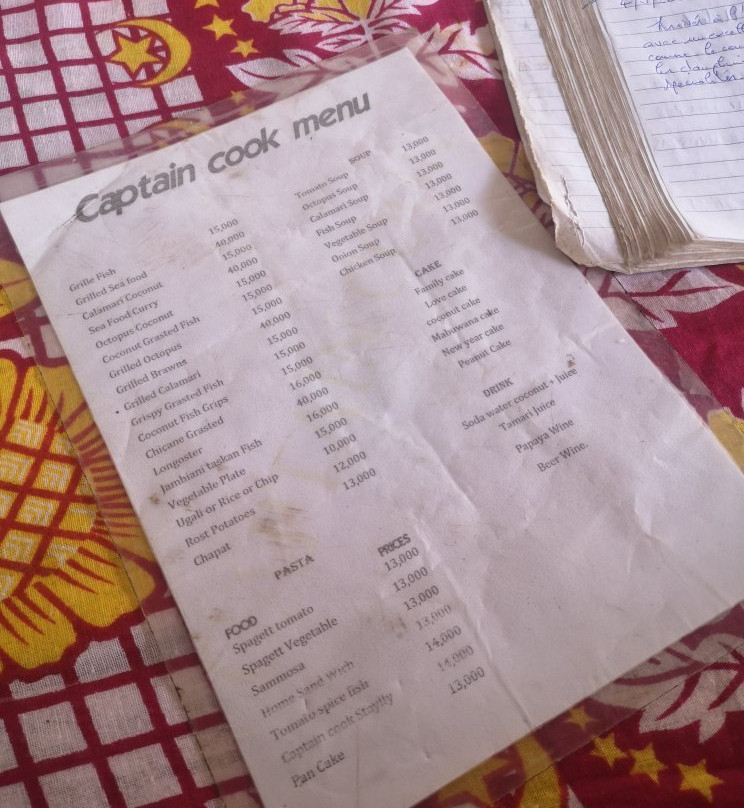 Captain cook menu
Grille Fish 15,000
Grilled Sea food 40,000
Calamari Coconut 15,000
Sea Food Curry 40,000
Octopus Coconut 15,000
Coconut Grasted Fish 15,000
Grilled Octopus 15,000
Grilled Brawns 40,000
Grilled Calamari 15,000
Grispy Grasted Fish 15,000
Coconut Fish Grips 15,000
Chicane Grasted 16,000
Longoster 40,000
Jambiani taskan Fish 16,000
Vegetable Plate 15,000
Ugali or Rice or Chip 10,000
Rost Potatoes 12,000
Chapat 13,000
SOUP
Tomato Soup 13,000
Octopus Soup 13,000
Calamari Soup 13,000
Fish Soup 13,000
Vegetable Soup 13,000
Onion Soup 13,000
Chicken Soup
CAKE
Family cake
Love cake
coconut cake
Mabuwana cake
New year cake
Peanut Cake
DRINK
Soda water coconut + Juice
Tamari Juice
Papaya Wine
Beer Wine.
PASTA
FOOD PRICES
Spagett tomato 13,000
Spagett Vegetable 13,000
Sammosa 13,000
Home Sand Wich 13,000
Tomato spice fish 14,000
Captain cook Staylly 14,000
Pan Cake 13,000
avec
comme le